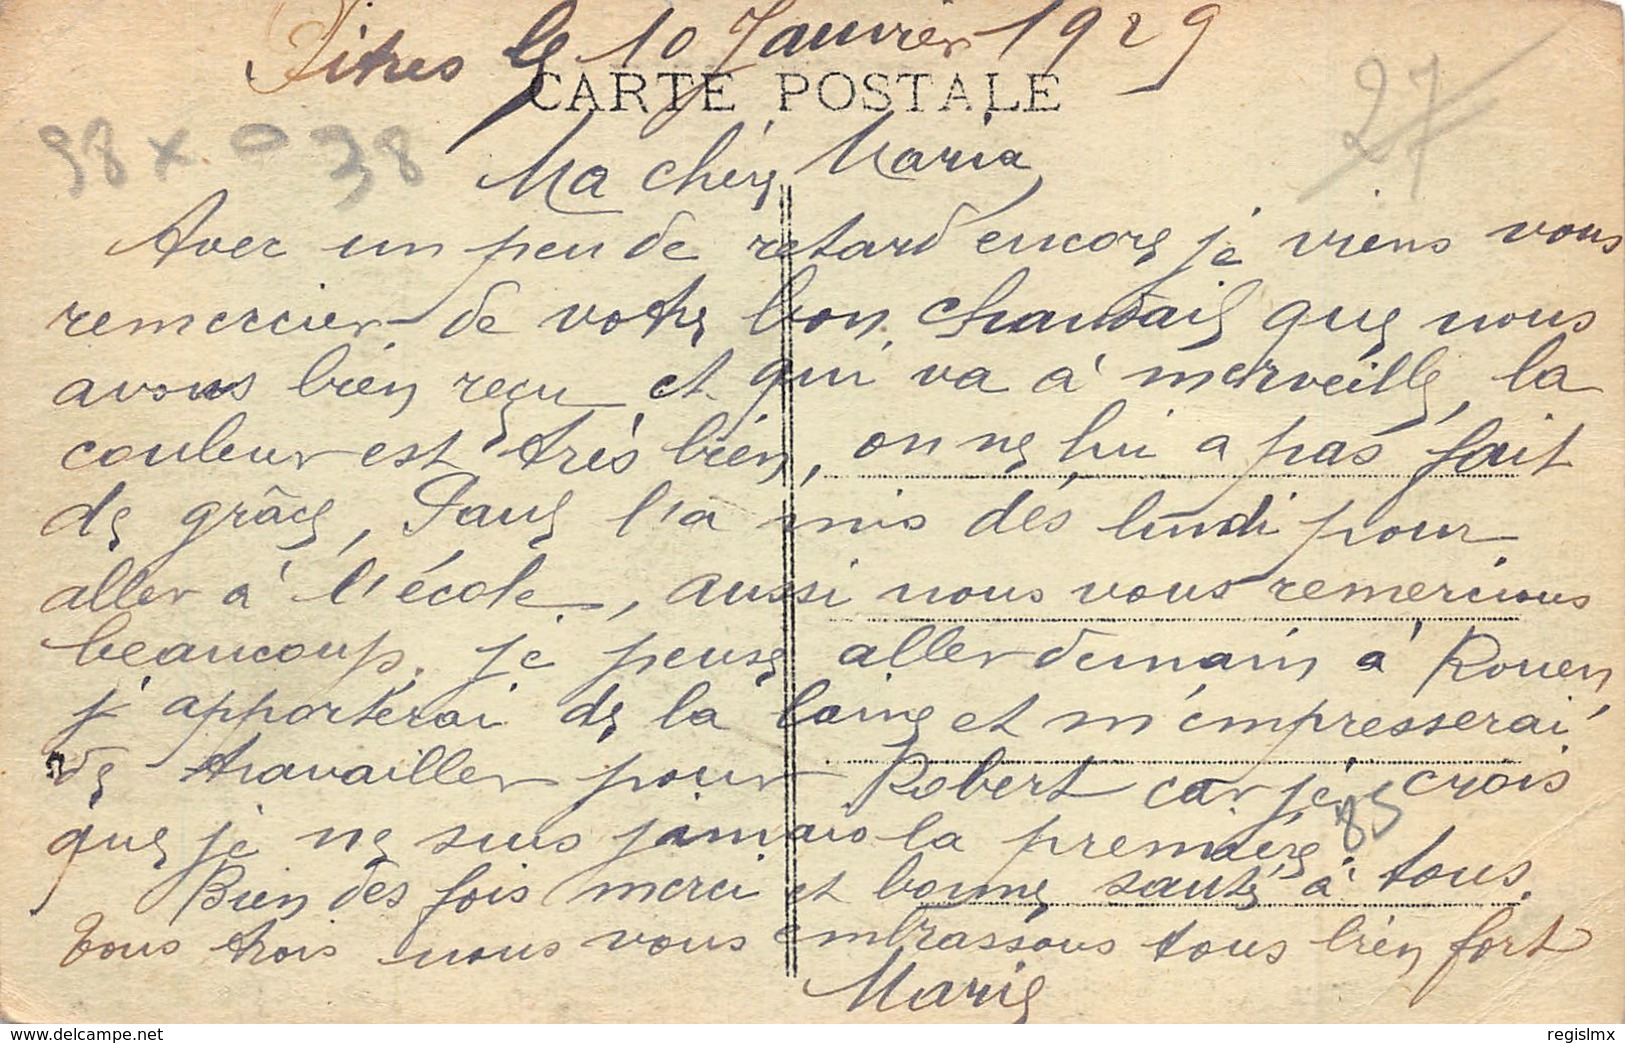 Pitres le 10 Janvier 1929
CARTE POSTALE
27
98 x 0 38
Ma chère Maria
Avec un peu de retard encore je viens vous
remercier de votre bon chandail que nous
avons bien reçu et qui va à merveille, la
couleur est très bien, on ne lui a pas fait
de grâce, Paul l'a mis dès lundi pour
aller à l'école, aussi nous vous remercions
beaucoup. je pense aller demain à Rouen,
j'apporterai de la laine et m'empresserai
de travailler pour Robert car je crois
85
que je ne suis jamais la première
Bien des fois merci et bonne santé à tous.
Tous trois nous vous embrassons tous bien fort
Marie
https://www.delcampe.net
regislmx